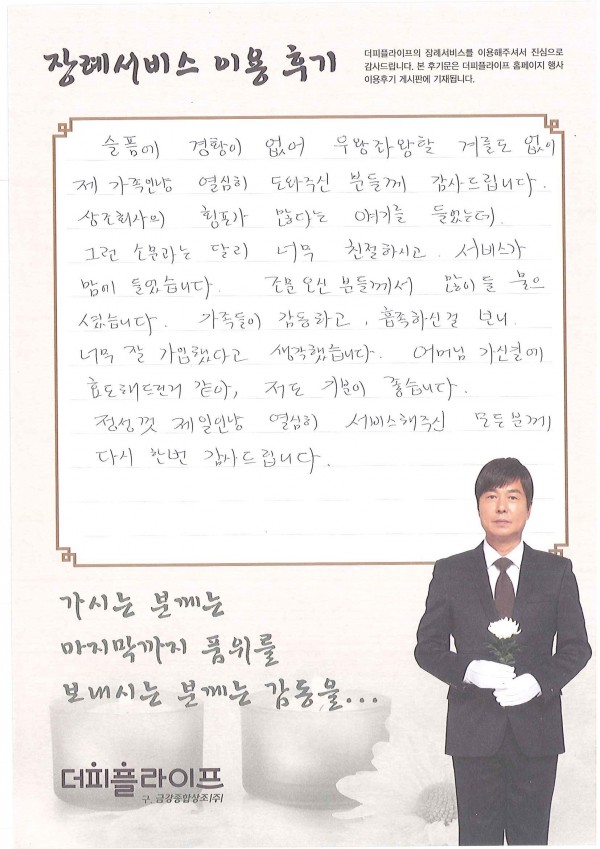 장례서비스 이용 후기
더피플라이프의 장례서비스를 이용해주셔서 진심으로
감사드립니다. 본 후기문은 더피플라이프 홈페이지 행사
이용후기 게시판에 기재됩니다.
슬픔에 경황이 없어 우왕좌왕할 겨를도 없이
제 가족인냥 열심히 도와주신 분들께 감사드립니다.
상조회사의 횡포가 많다는 얘기를 들었는데.
그런 소문과는 달리 너무 친절하시고. 서비스가
맘에 들었습니다. 조문오신 분들께서 많이들 물으
셨습니다. 가족들이 감동하고, 흡족하신걸 보니.
너무 잘 가입했다고 생각했습니다. 어머님 가신길에
효도해드린거 같아, 저도 기분이 좋습니다.
정성껏 제일인냥 열심히 서비스해주신 모든분께
다시 한번 감사드립니다.
가시는 분께는
마지막까지 품위를
보내시는 분께는 감동을...
더피플라이프
구. 금강종합상조(주)